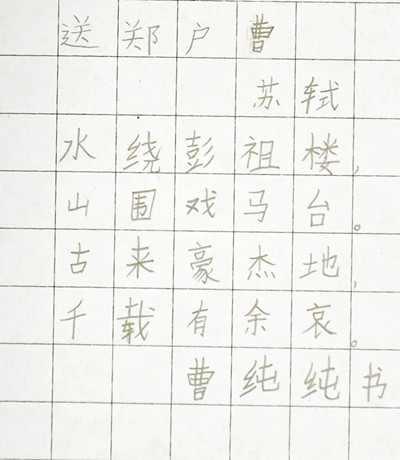 送郑户曹
苏轼
水绕彭祖楼,
山围戏马台。
古来豪杰地,
千载有余哀。
曹纯纯书